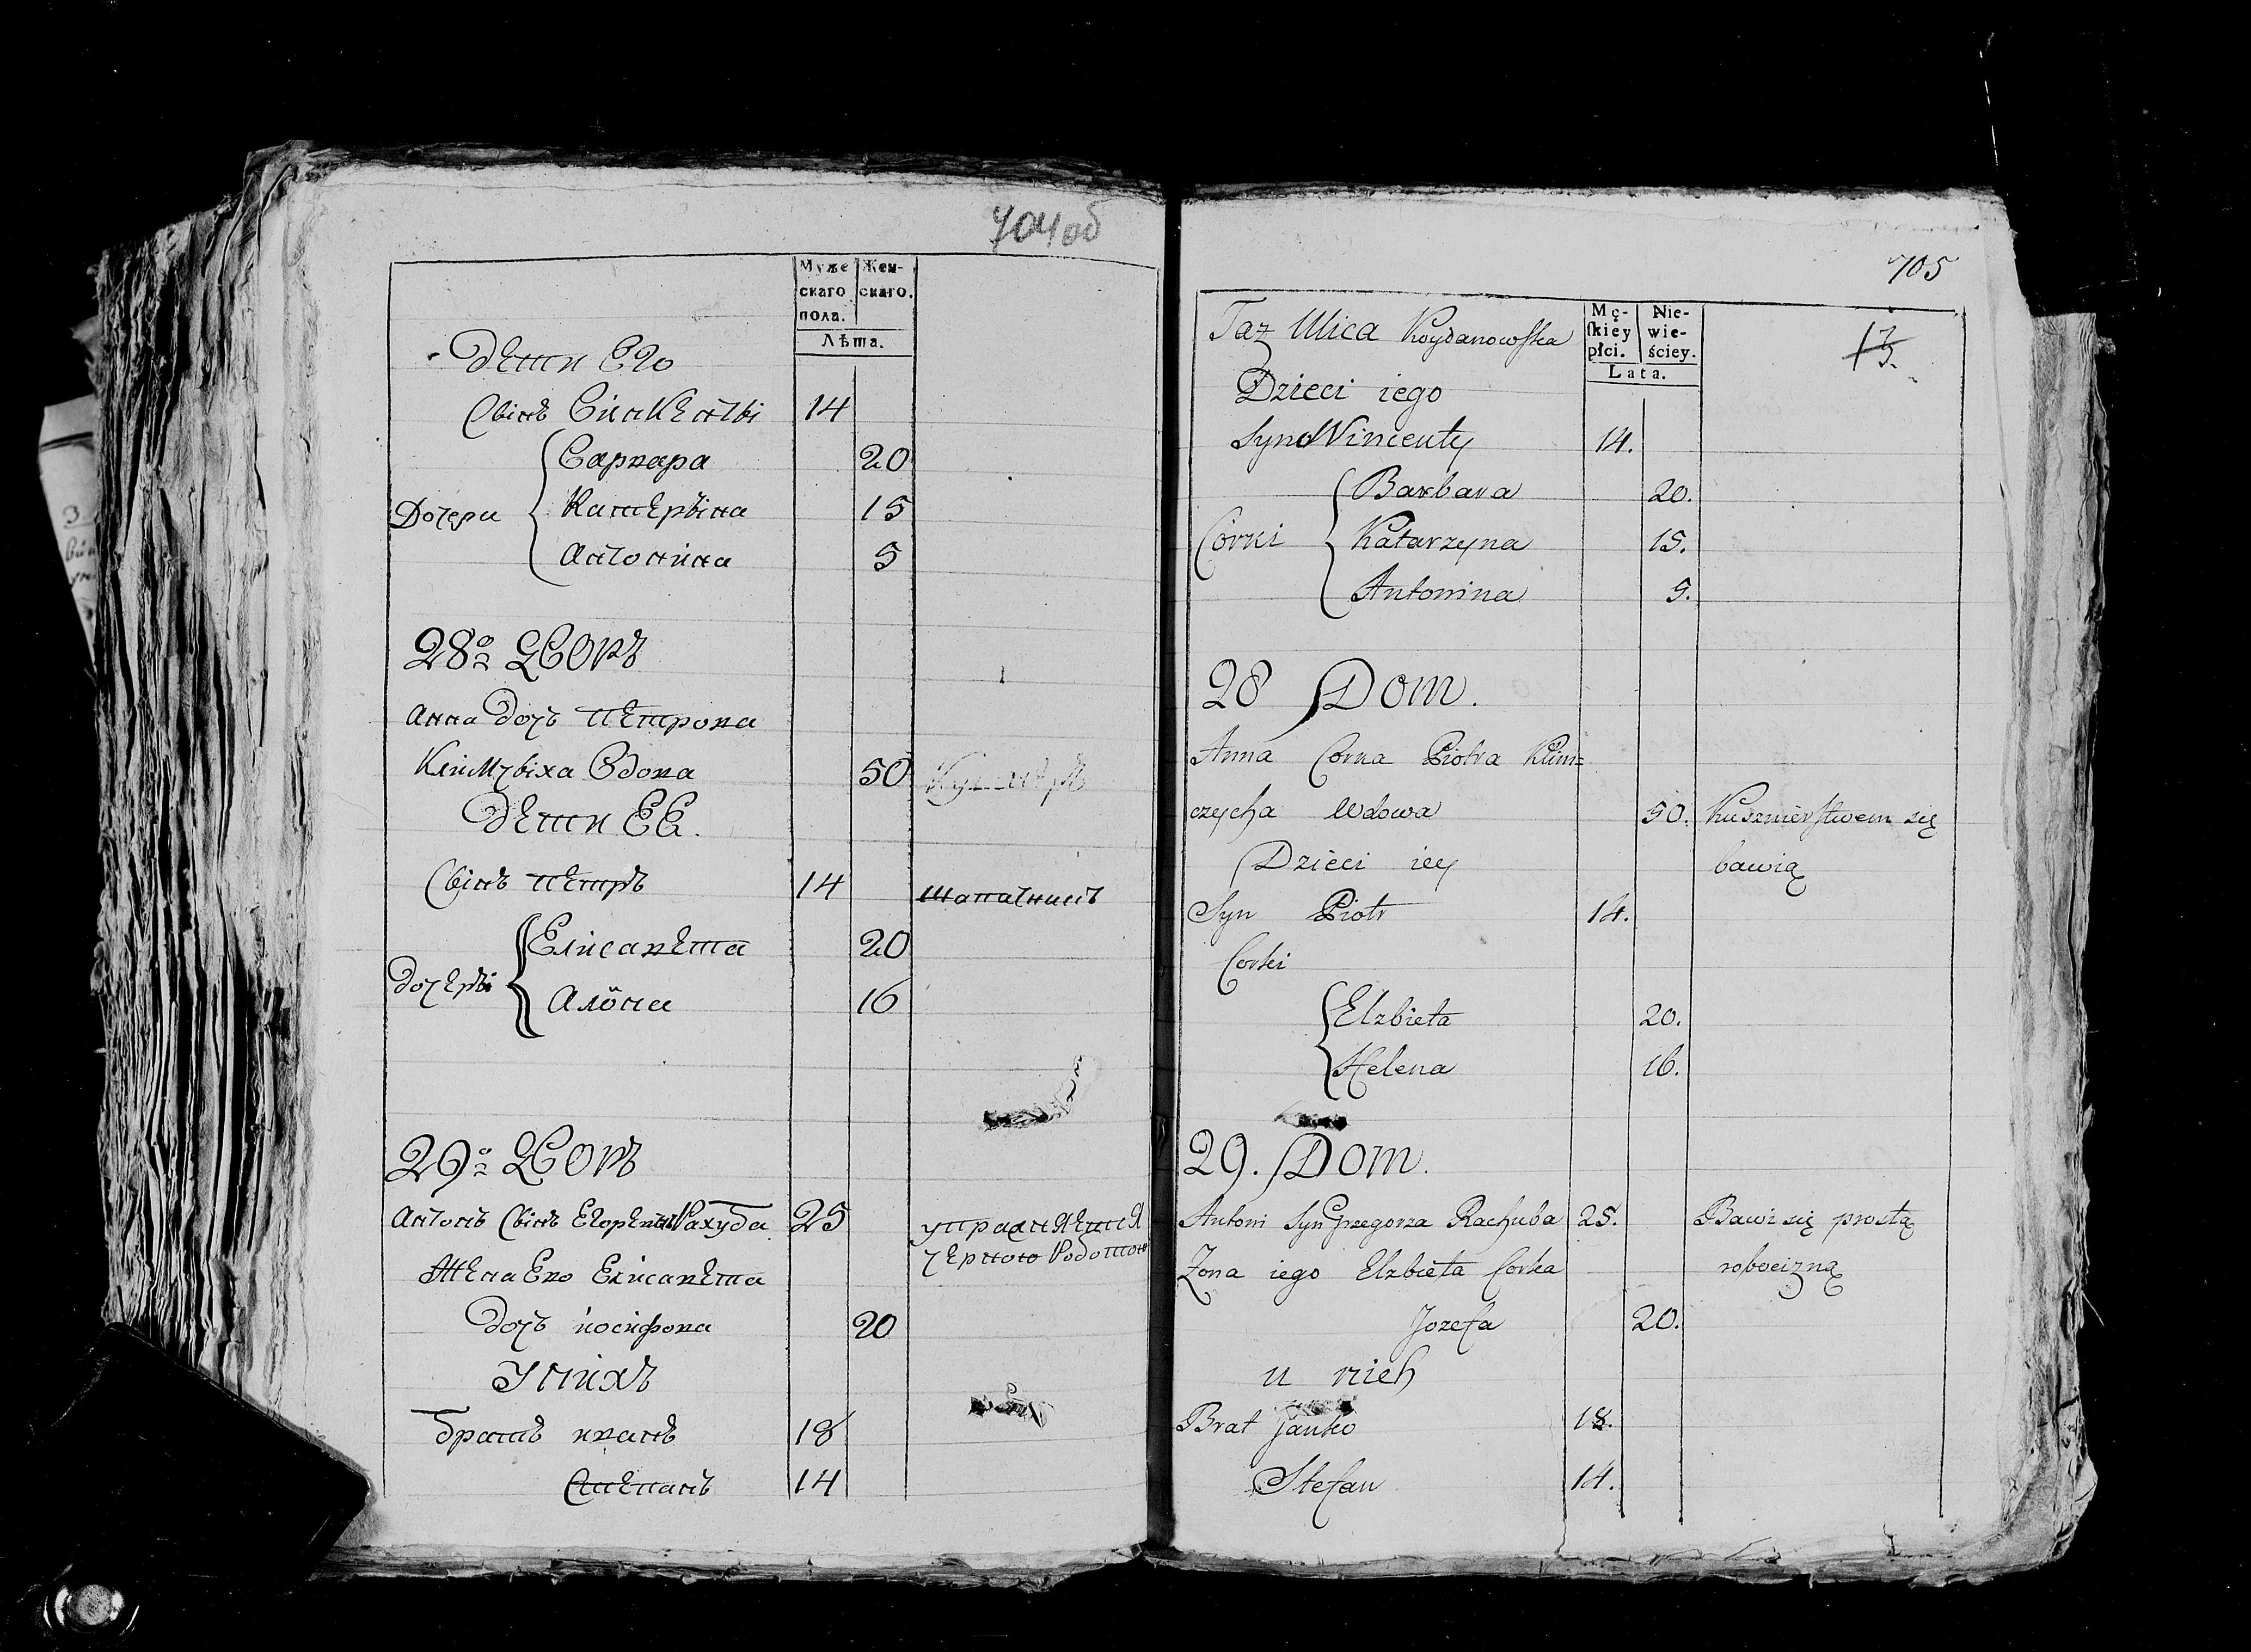 704 об
Муже
скаго
пола.
Жен-
скаго.
Лѣта.
Дети Его
Сынъ Викенты 14
Варвара 20
Дочери Катерына 15
Антонина 5
28о Дворъ
Анна Дочъ Петрова
Климчыха Вдова 50
Дети Ее.
Сынъ Петръ 14 Шапачникъ
Елисавета 20
Дочеры
Алёна 16
29о Дворъ
Антонъ Сынъ Егоревъ Рахуба 25 упражняется
черною Работою
Жена Ево Елисавета
Дочъ Иосифова 20
У нихъ
братъ иванъ 18
Степанъ 14
705
Taż Ulica Koydanowska
Mę-
skiey
płci.
Nie-
wie-
ściey.
Lata.
13.
Dzieci iego
Syn Wincenty 14.
Barbara 20.
Corki Katarzyna 15.
Antonina 5.
28 Dom.
Anna Corka Piotra Klim=
czycha Wdowa 50. Kusznierstwem się
Dzieci iey bawią
Syn Piotr 14.
Corki
Elzbieta 20.
Helena 16.
29. Dom.
Antoni Syn Grzegorza Rachuba 25. Bawi się prostą
Zona iego Elzbieta Corka robocizną
Jozefa 20.
u nich
Brat Janko 18.
Stefan 14.